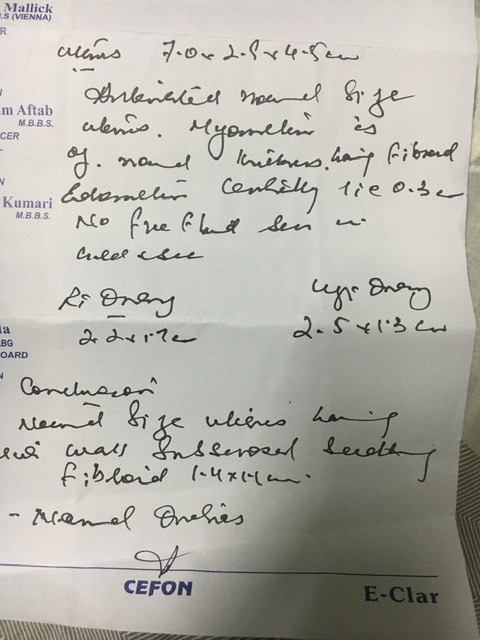 Mallick
.S (VIENNA)
R
uterus 7.0 x 2.9 x 4.5 cm
Anteverted normal size
uterus. Myometrium is
of normal thickness, having fibroid
Endometrium Centrally lie 0.3 c
No free fluid seen in
culdesac
m Aftab
M.B.B.S.
CER
N
Kumari
M.B.B.S.
Rt Ovary
2.2 x 1.7 cm
Ovary
2.5 x 1.3 cm
ia
BG
OARD
N
Conclusion
Normal size uterus having
wall Subserosal Seedling
Fibroid 1.4 x 1.1 cm.
- Normal Ovaries
CEFON
E-Clar